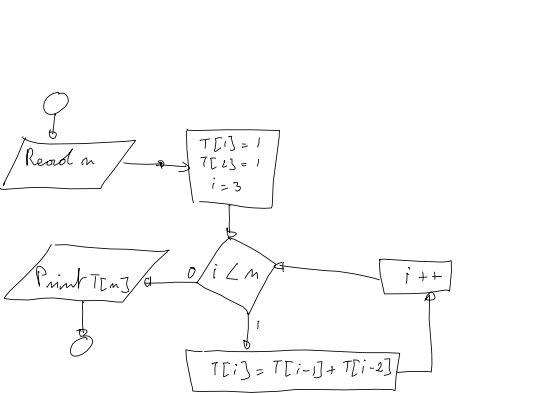 Read n
T[1] = 1
T[2] = 1
i = 3
i < n
0
Print T[n]
i ++
1
T[i] = T[i-1] + T[i-2]